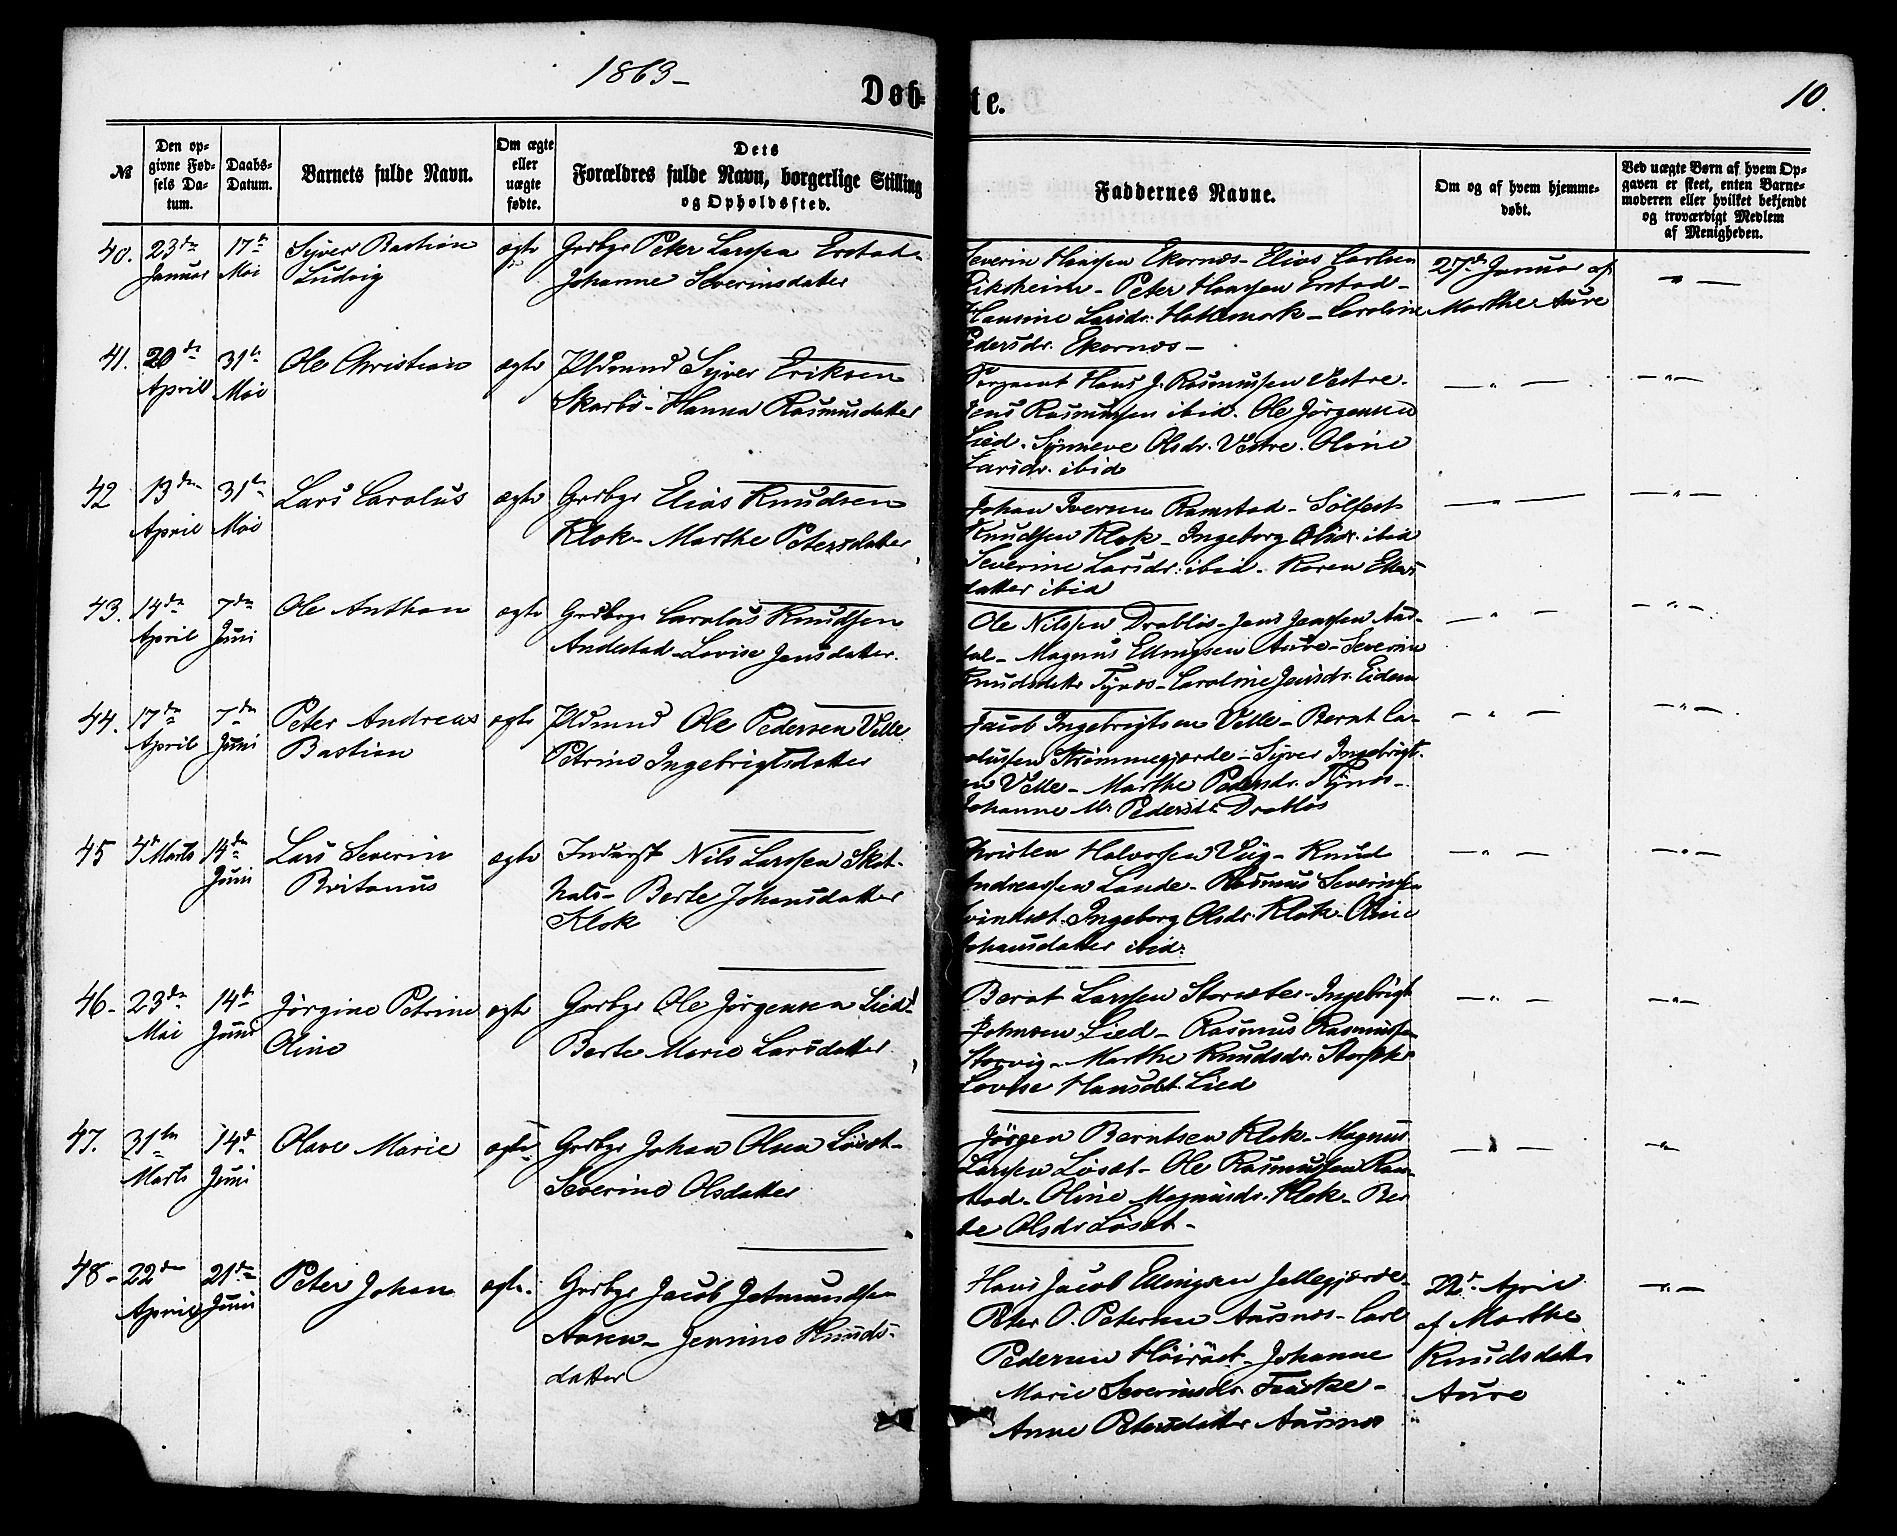 1863-
Døb-
te.
10.
№
Den op-
givne Fød-
sels Da-
tum.
Daabs-
Datum.
Barnets fulde Navn.
Om ægte
eller
uægte
fødte.
Dets
Forældres fulde Navn, borgerlige Stilling
og Opholdssted.
Faddernes Navne.
Om og af hvem hjemme-
døbt.
Ved uægte Børn af hvem Op-
gaven er skeet, enten Barne-
moderen eller hvilket bekjendt
og troværdigt Medlem
af Menigheden.
40. 23de Januar
17de Mai
Syver Bastian
Ludvig
ægte
Grdbgr Peter Larssen Erstad-
Johanne Severinsdatter
Severin Hanssen Ekornæs- Elias Carlsen
Riksheim- Peter Hanssen Erstad-
Hansine Larsdr. Hatlemark- Caroline
Pedersdr. Ekornæs-
27de Januar af
Marthe Aure
41. 20de April
31te Mai
Ole Christian
ægte
Pldmand Syver Eriksen
Skarbö- Hanna Rasmusdatter
Sergeant Hans J. Rasmussen Vestre.
Jens Rasmussen ibid. Ole Jörgensen
Lied. Synneve Olsdr. Vestre. Oline
Larsdr. ibid
42 13de April
31te Mai
Lars Carolus
ægte
Grdbgr Elias Knudsen
Klok- Marthe Petersdatter
Johan Iversen Ramstad- Sölfest
Knudsen Klok- Ingeborg Olsdr. ibid
Severine Larsdr. ibid- Karen Ellers
datter ibid
43. 14de April
7de Juni
Ole Anthon
ægte
Grdbgr Carolus Knudsen
Andestad- Lovise Jensdatter.
Ole Nilssen Drabløs- Jens Jenssen Aur-
dal- Magnus Ellingsen Aure- Severine
Knudsdatter Tynæs- Caroline Jensdr. Eidem
44. 17de April
7de Juni
Peter Andreas
Bastian
ægte
Pldmand Ole Pedersen Velle
Petrine Ingebrigtsdatter
Jacob Ingebrigtsen Velle- Bernt Ca-
rolussen Strömmegjerde- Syver Ingebrigt-
sen Velle- Marthe Pedersdr. Tynæs-
Johanne M. Pedersdr. Drabløs
45 4de Marts
14de Juni
Lars Severin
Britanus
ægte
Inderst Nils Larssen Sket-
hals- Berte Johansdatter
Klok
Kristen Halvorsen Viig- Knud
Andreassen Lande- Rasmus Severinsen
Ingeborg Olsdr. Klok- Oline
Johansdatter ibid.
46- 23de Mai
14de Juni
Jörgine Petrine
Oline
ægte
Grdbgr Ole Jörgensen Lied-
Berte Marie Larsdatter
Bernt Larssen Storsæter- Ingebrigt
Johnsen Lied- Rasmus Rasmussen
Storvig- Marthe Knudsdr.
Lovise Hansdt. Lied
47. 31te Marts
14de Juni
Olave Marie
ægte
Grdbgr Johan Olsen Löset-
Severine Olsdatter
Jörgen Berntsen Klok- Magnus
Larssen Löset- Ole Rasmussen Ram-
stad- Oline Magnusdr. Klok- Ber-
te Olsdr Löset-
48- 22de April
21de Juni
Peter Johan
ægte.
Grdbgr Jacob Gutmundsen
Aasen- Jensine Knuds-
datter
Hans Jacob Ellingsen Jellegjærde-
Peter O. Petersen Aursnes- Carl
Pedersen Höiråset- Johanne
Marie Severinsdr. Fauske-
Anne Petersdatter Aursnes
22de April
af Marthe
Knudsdatter
Aure